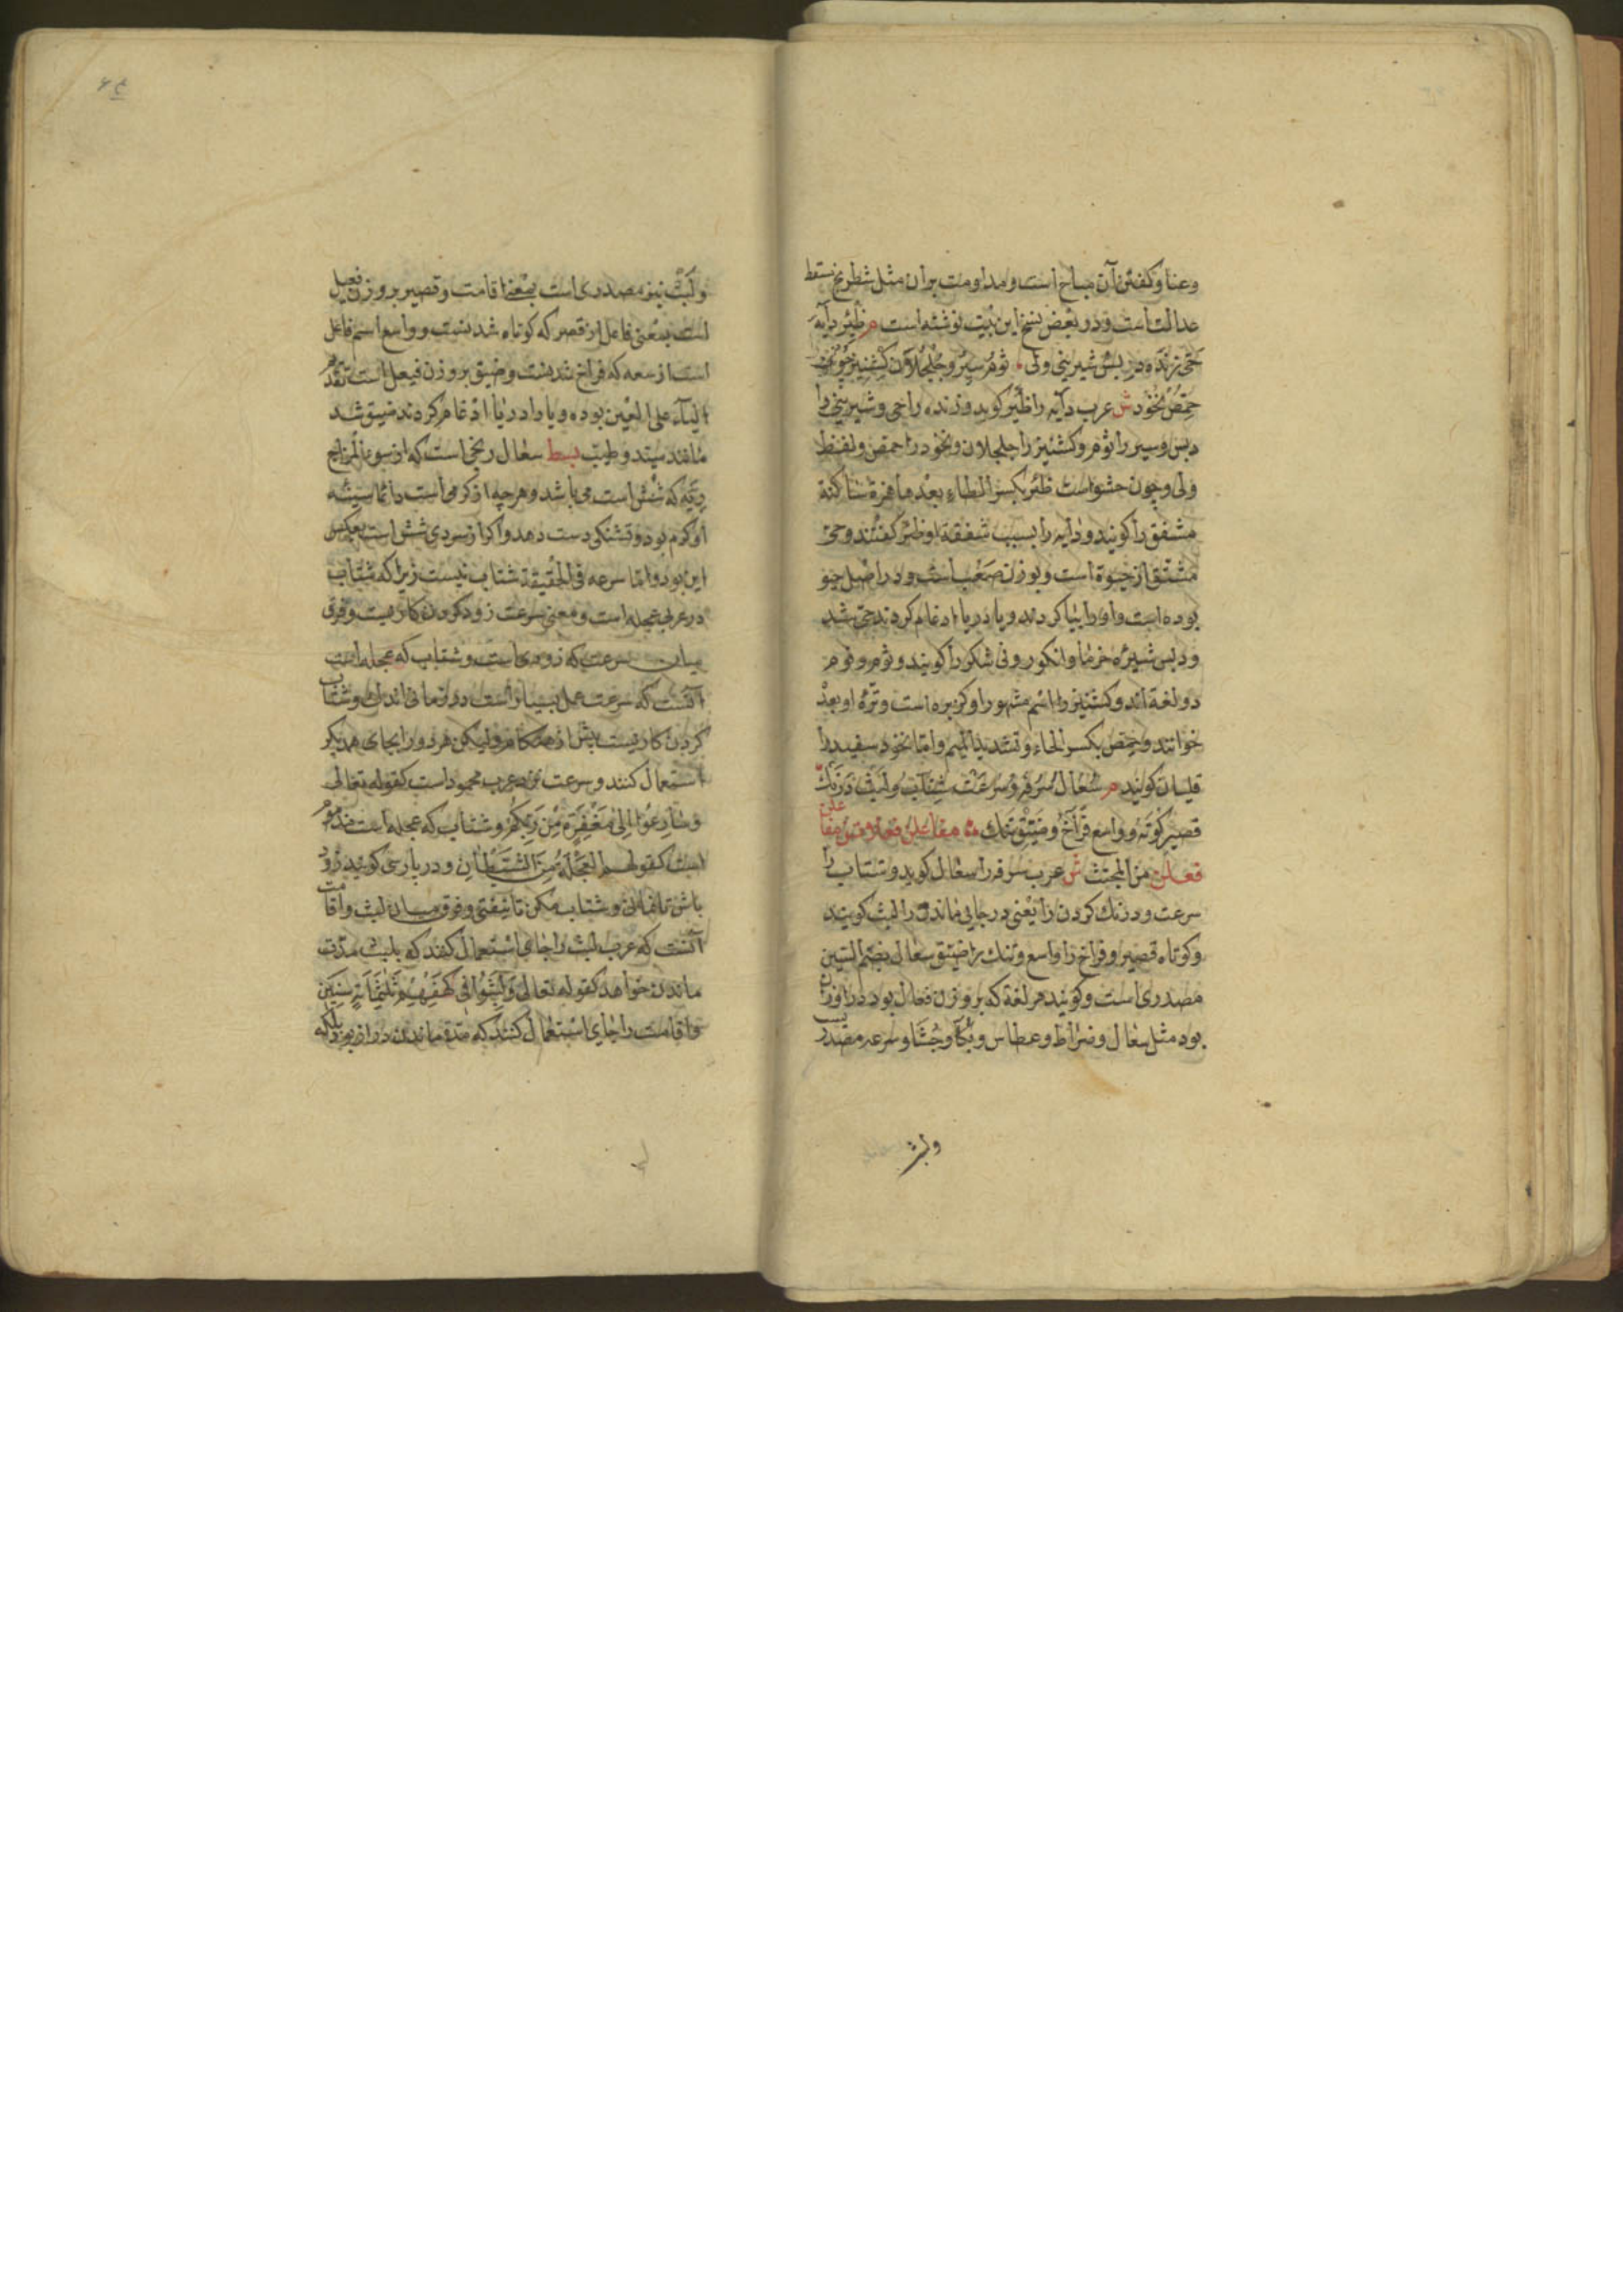 وعنا و کفتن آن مباح است و مداومت بران مثل شطرنج مسقط
عدالت است و در بعض نسخ این بیت نوشته است م ظئر دایه
حی زنده دبس شیرینی ولی ثوم سیر و جلجلان کشنیز
حمص نخود ش عرب دایه را ظئر کوید و زنده را حی و شیرینی را
دبس و سیر را ثوم و کشنیز را جلجلان و نخود را حمص و لفظ
ولی چون حشو است ظئر بکسر الظاء بعدها همزة ساکنة
مشفق را کویند و دایه را بسبب شفقة او ظئر کفتند و حی
مشتق از حیوة است و بوزن صعب است و در اصل حیو
بوده است واو را بیا کردند و یا در یا ادغام کردند حی شد
و دبس شیره خرما و انکور ونی شکر را کویند و ثوم و فوم
دو لغة اند و کشنیز را اسم مشهور او کزبره است و تره او بعد
خوانند و حمص بکسر الحاء و تشدید المیم و اما نخود سفید را
قلبان کویند م سعال سرفه و سرعت شتاب و لبث درنک
قصیر کوته و واسع فراخ و ضیق تنک مفاعلن فعلاتن مفاعلن
فعلن من المجتث ش عرب سرفه را سعال کوید و شتاب را
سرعت و درنک کردن را یعنی در جایی ماندن را لبث کویند
و کوتاه قصیر و فراخ را واسع و تنک را ضیق سعال بضم السین
مصدری است و کویند هر لغة که بر وزن فعال بود در اوزان
بود مثل سعال و ضراط و عطاس و بکا و جشا و سرعه مصدر
ولبث
ولبث نیز مصدری است بمعنی اقامت و قصیر بر وزن فعیل
است بمعنی فاعل از قصر که کوتاه شدنست و واسع اسم فاعل
است از سعه که فراخ شدنست و ضیق بر وزن فیعل است تقدم
الیاء علی العین بوده و یا را در یا ادغام کردند ضیق شد
مانند سید و طیب بسط سعال رنجی است که از سوء المزاج
ریه که شش است می باشد و هر چه از کرمی است دائما سینه
او کرم بود و تشنکی دست دهد و اکر از سردی شش است بعکس
این بود و اما سرعه فی الحقیقة شتاب نیست زیرا که شتاب
در عربی عجله است و معنی سرعت زود کردن کاریست و فرق
میان سرعت که زودی است و شتاب که عجله است
آنست که سرعت عمل بسیار است در زمانی اندک و شتاب
کردن کاریست پیش از هنکام ولیکن هر دو را بجای همدیکر
استعمال کنند و سرعت نزد عرب محمود است کقوله تعالی
وسارعوا الی مغفرة من ربکم و شتاب که عجله است مذموم
است کقولهم العجلة من الشیطان و در پارسی کویند زود
باش تا نمانی و شتاب مکن تا نیفتی و فرق میان لبث و اقامت
آنست که عرب لبث را جایی استعمال کنند که بلبث مدت
ماندن خواهد کقوله تعالی ولبثوا فی کهفهم ثلثمائة سنین
و اقامت را جای استعمال کنند که مدة ماندن دراز بود بلکه